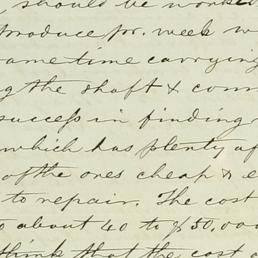 , should be worked
produce pr. week w
same time carrying
g the shaft & com
success in finding
which has plenty of
of the ores cheap & e
to repair. The cost
o about 40 to $50,000
think that the cost o